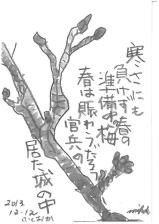 寒さにも
負けず春の
準備の梅
春は賑わうだろう
官兵の
居た城の中
2013.
12-12